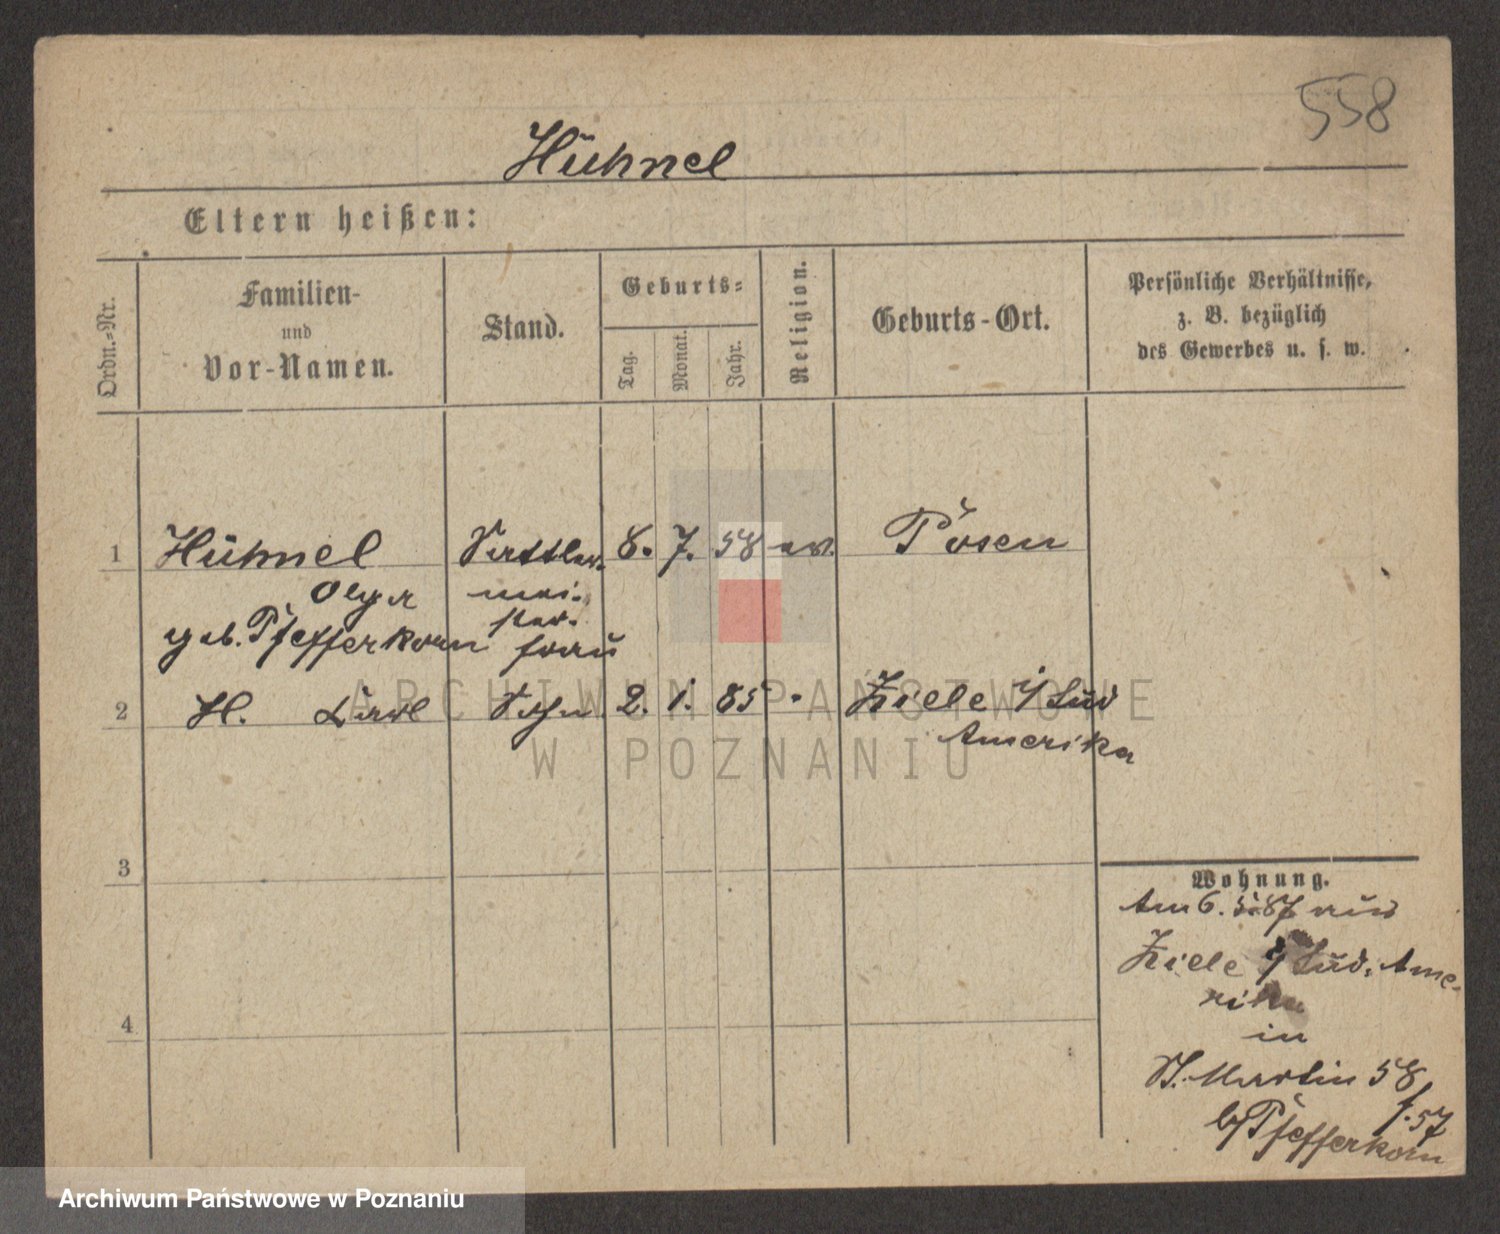 558
Hühnel
Eltern heißen:
Ordn.-Nr.
Familien-
und
Vor-Namen.
Stand.
Geburts-
Tag.
Monat.
Jahr.
Religion.
Geburts-Ort.
Persönliche Verhältnisse,
z. B. bezüglich
des Gewerbes u. s. w.
1 Hühnel Sattler- 8. 7. 58 ev. Posen
Olga mei-
geb. Pfefferkorn ster-
frau
2 H. Karl Sohn 2. 1. 85 " Ziele i/ Süd
Amerika
3
4
Wohnung.
Am 6. 5. 87 aus
Ziele i/ Süd. Ame-
rika
in
St. Martin 58
f. 57
b/ Pfefferkorn
ARCHIWUM PAŃSTWOWE
W POZNANIU
Archiwum Państwowe w Poznaniu